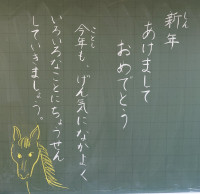 新年
あけまして
おめでとう
今年も、げん気になかよく
いろいろなことにちょうせん
していきましょう。